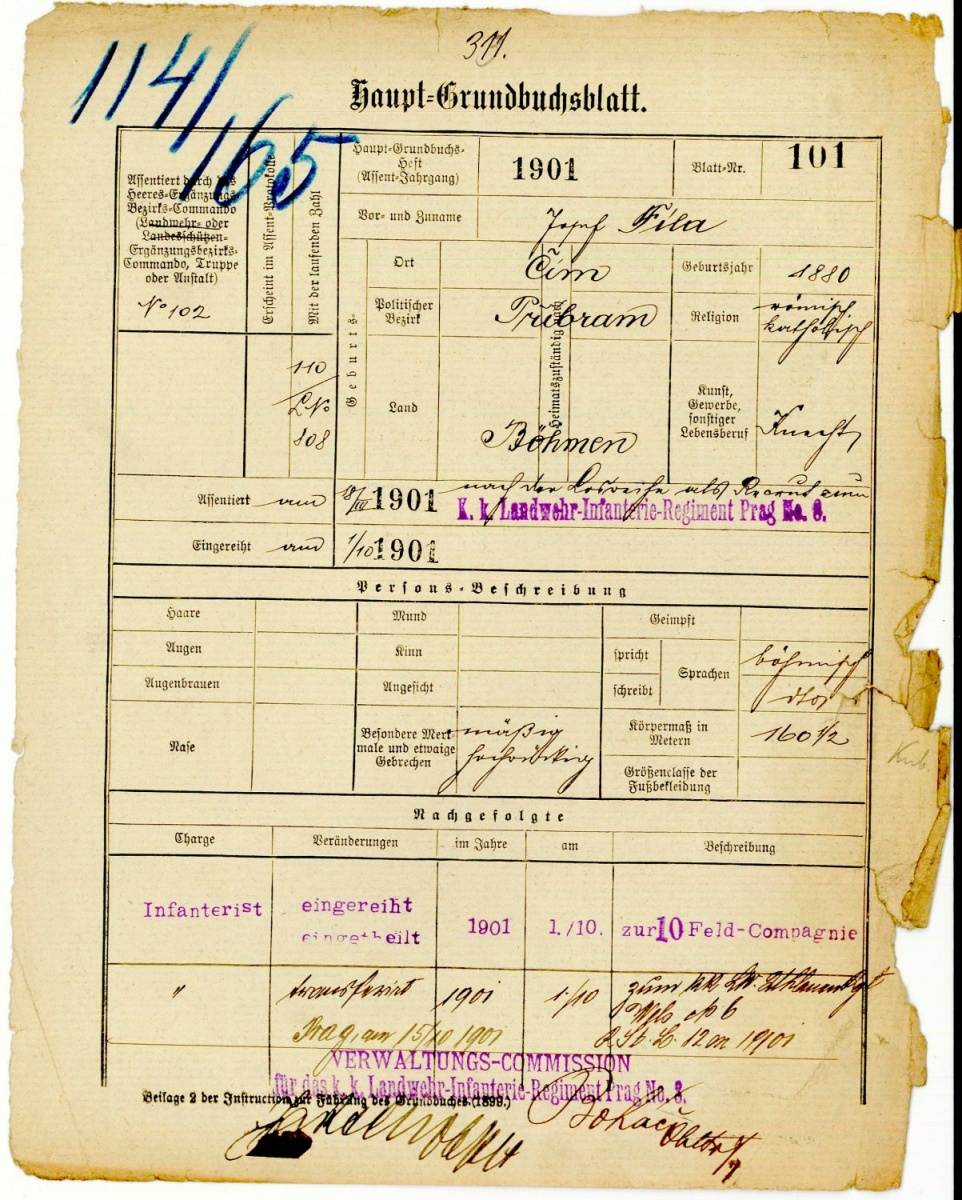 311.
114/165
Haupt-Grundbuchsblatt.
Assentiert durch das
Heeres-Ergänzungs-
Bezirks-Commando
(Landwehr- oder
Landesschützen-
Ergänzungsbezirks-
Commando, Truppe
oder Anstalt)
No 102
Erscheint im Assent-Protokolle
Mit der laufenden Zahl
110
LNo
808
Haupt-Grundbuchs-
Heft
(Assent-Jahrgang)
1901
Blatt-Nr.
101
Vor- und Zuname
Josef Fila
Geburts-
Ort
Čím
Geburtsjahr
1880
Politischer
Bezirk
Přibram
Heimatszuständig
Religion
römisch
katholisch
Land
Böhmen
Kunst,
Gewerbe,
sonstiger
Lebensberuf
Knecht
Assentiert am
1901
nach der Losreihe als Recrut zum
K. k. Landwehr-Infanterie-Regiment Prag No. 8.
Eingereiht am
1/10 1901
Persons-Beschreibung
Haare
Mund
Geimpft
Augen
Kinn
spricht
Sprachen
böhmisch
Augenbrauen
Angesicht
schreibt
dto
Nase
Besondere Merk-
male und etwaige
Gebrechen
mäßig
Körpermaß in
Metern
160 1/2
Größenclasse der
Fußbekleidung
Nachgefolgte
Charge
Veränderungen
im Jahre
am
Beschreibung
Infanterist
eingereiht
eingetheilt
1901
1./10.
zur 10 Feld-Compagnie
"
transferirt
1901
1/10
zum kk
Prag, am 15/10 1901
1901
VERWALTUNGS-COMMISSION
für das k. k. Landwehr-Infanterie-Regiment Prag No. 8.
Beilage 2 der Instruction zur Führung des Grundbuches (1899.)